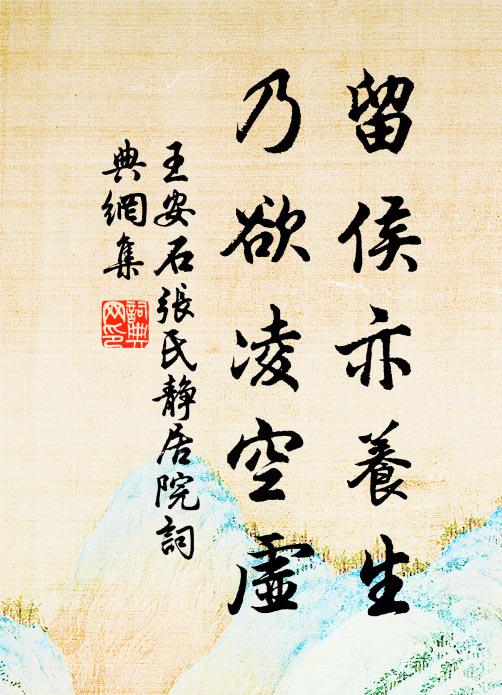 留侯亦養生
乃欲凌空虛
王安石張氏靜居院詞
典網集
詞典
网印